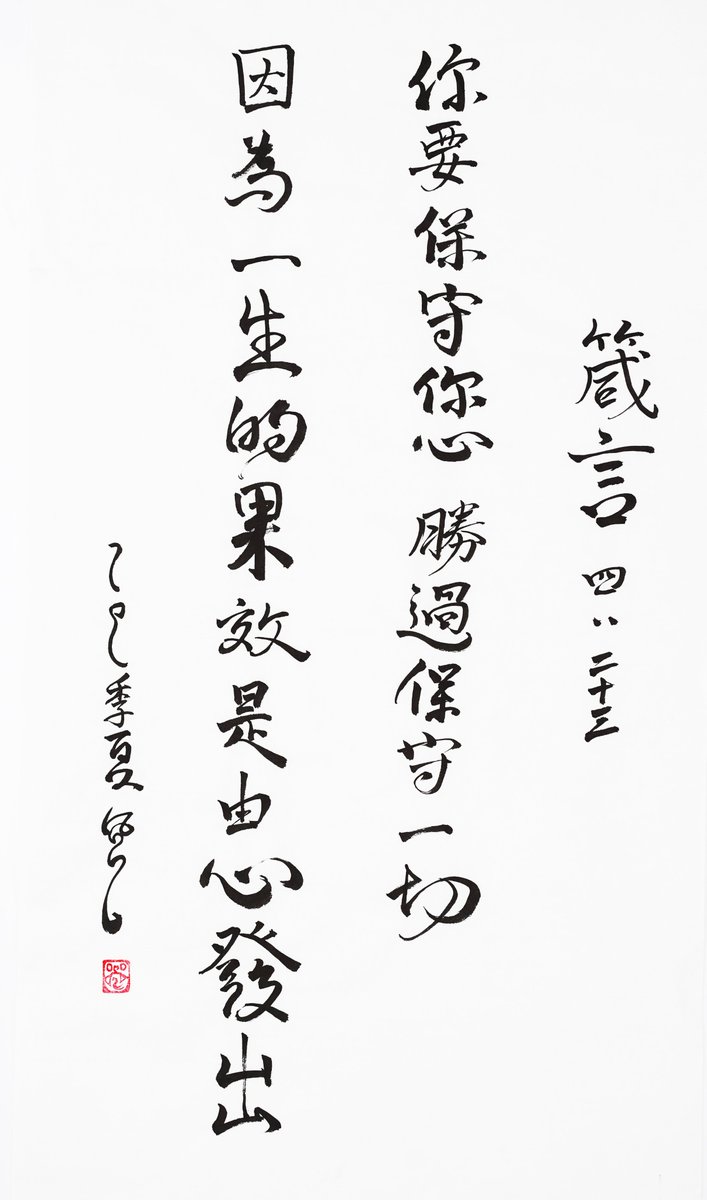 箴言 四：二十三
你要保守你心 勝過保守一切
因為一生的果效是由心發出
季夏